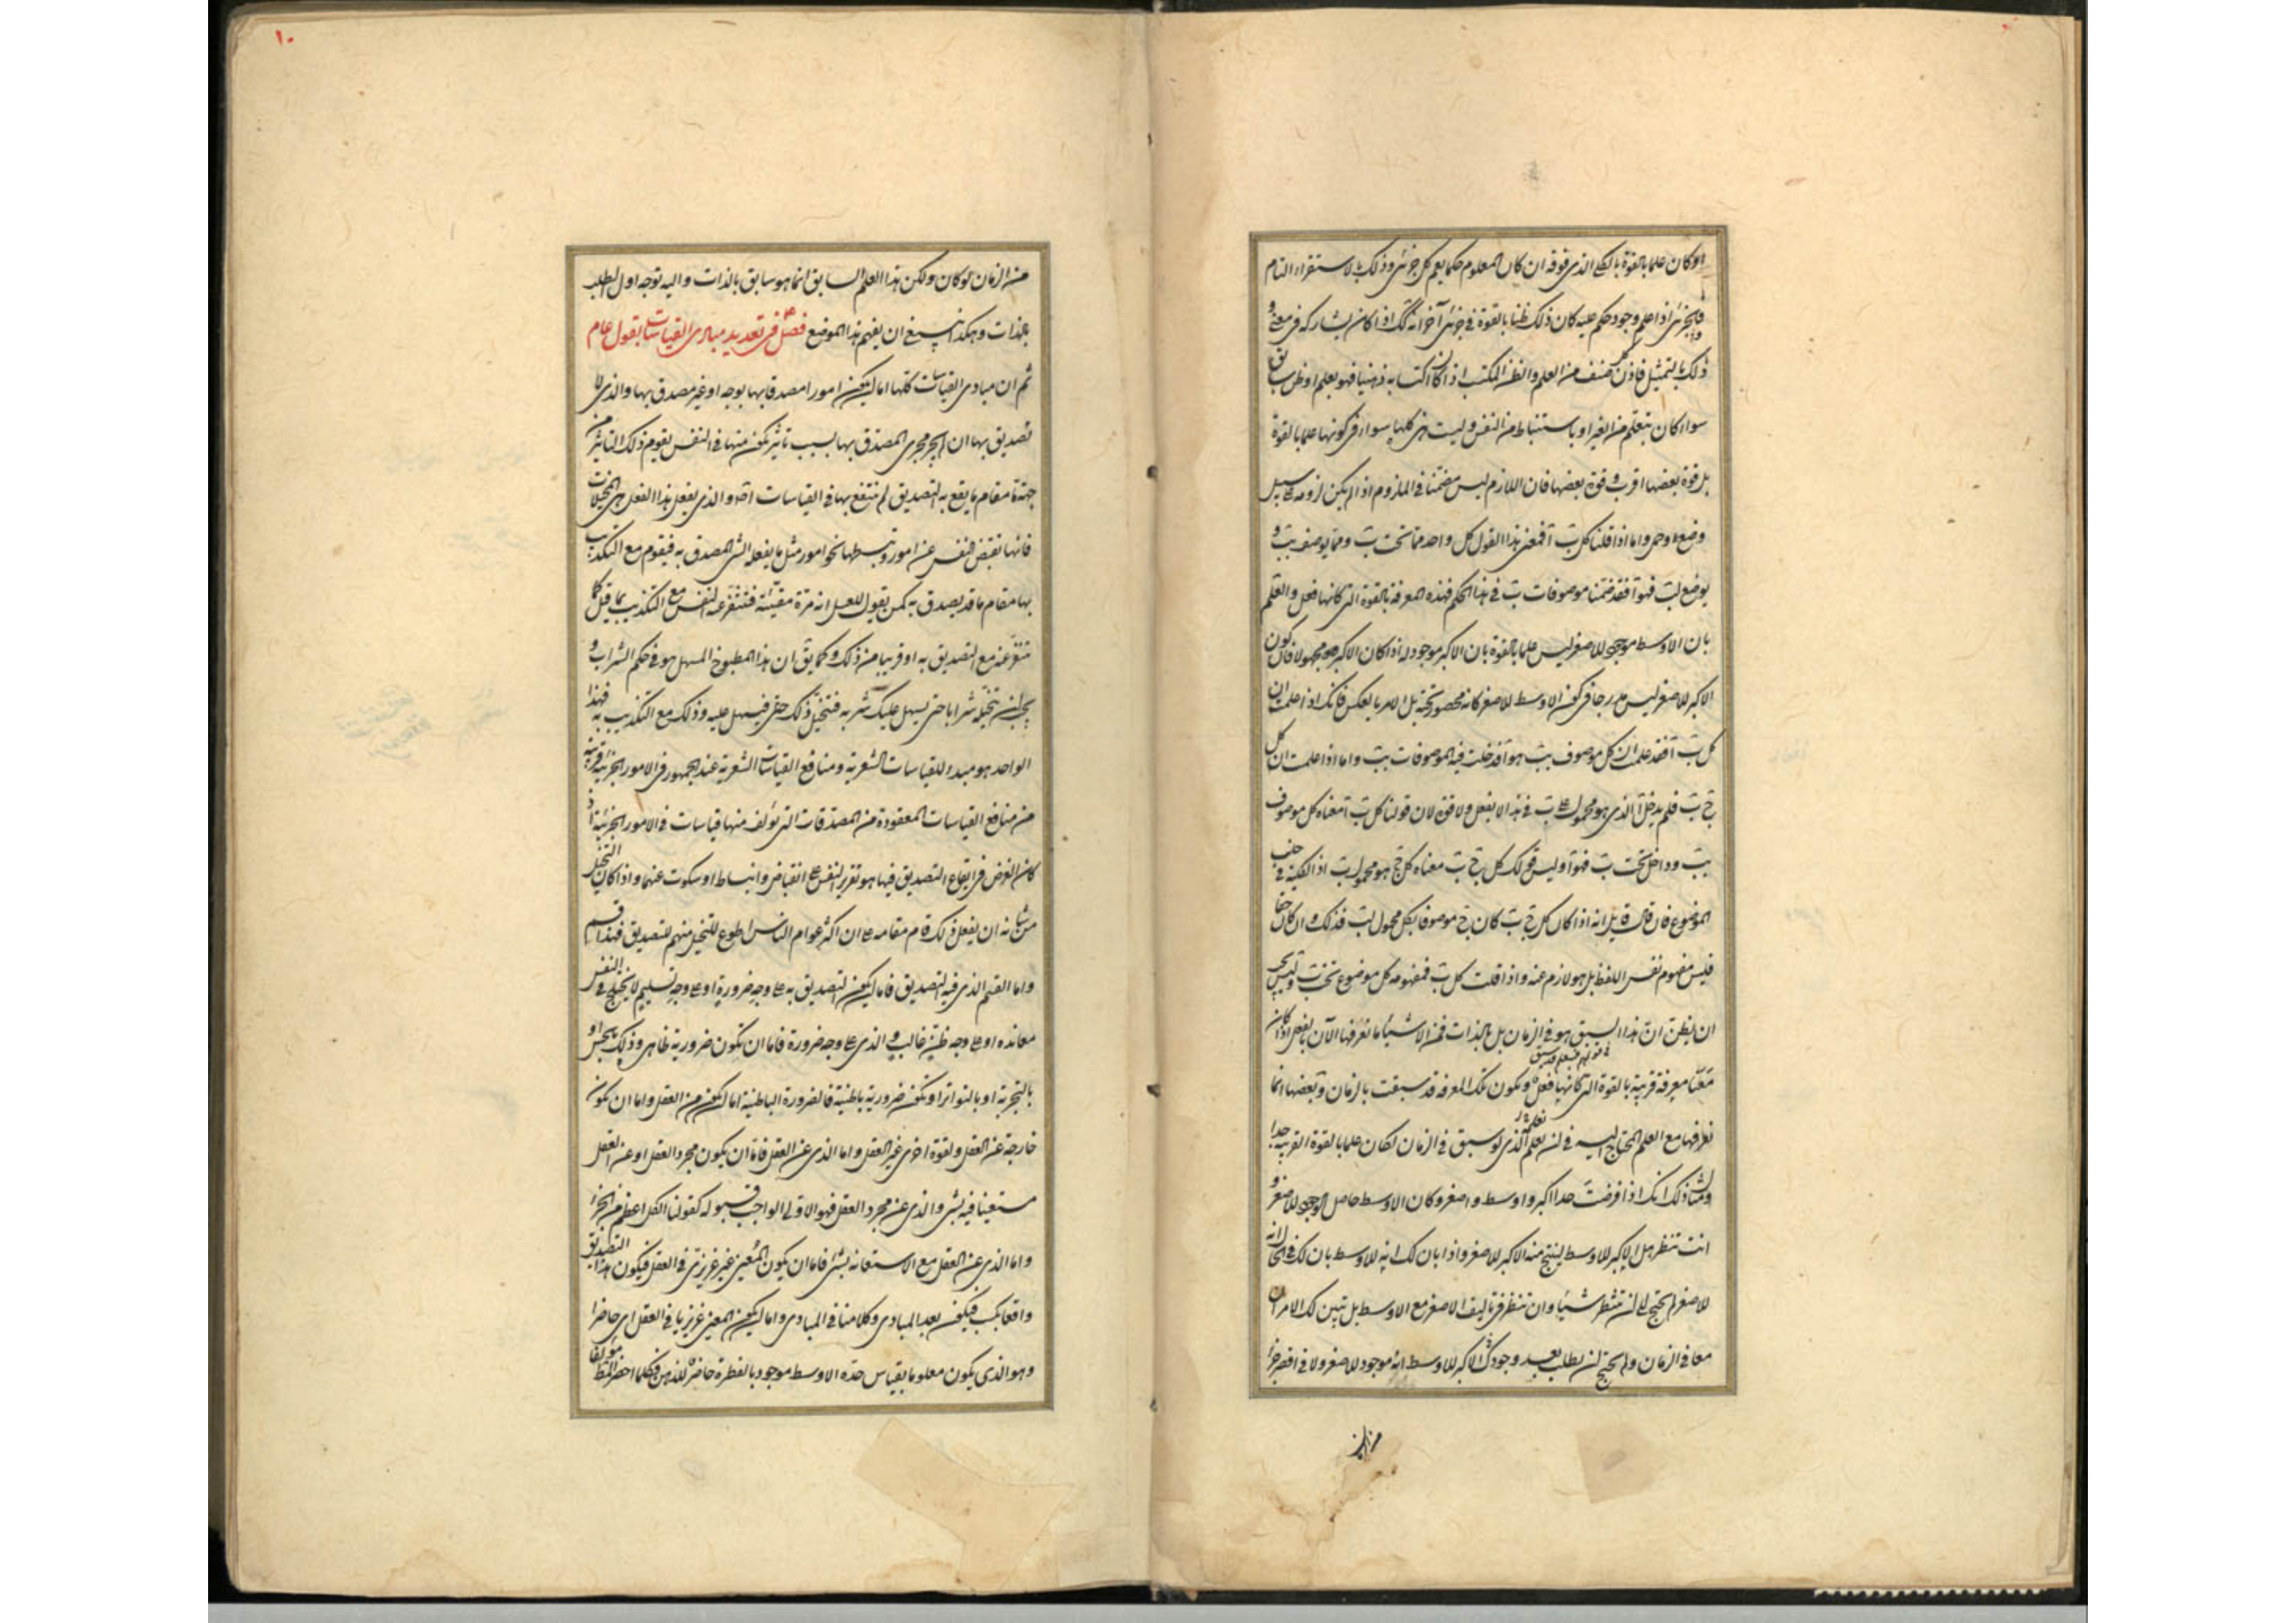 او كان علما بالقوة بالكلى الذى فوقه ان كان المعلوم حكما يعم كل جزئى وذلك بالاستقراء التام
فالجزئى اذا علم وجود حكم عليه كان ذلك ظنا بالقوة فى جزئى آخر انه كذلك اذا كان يشاركه فى معنى و
ذلك بالتمثيل فاذن كل صنف من العلم والظن المكتسب اذا كان اكتسابه ذهنيا فهو بعلم او ظن سابق
سواء كان بتعلم من الغير او باستنباط من النفس وليست هى كلها سواء فى كونها علما بالقوة
بل قوة بعضها اقرب وقوة بعضها فان اللازم ليس مضمنا فى الملزوم اذا لم يكن لزومه على سبيل
وضع وحمل واما اذا قلنا كل ب آ فمعنى هذا القول كل واحد مما تحت ب ومما يوصف بب و
يوضع لب فهو آ فقد ضمنا موصوفات ب فى هذا الحكم فهذه المعرفة بالقوة التى كانها فعل والعلم
بان الاوسط موجود للاصغر ليس علما بالقوة بان الاكبر موجود له اذا كان الاكبر مجهولا فان كون
الاكبر للاصغر ليس مدرجا فى كون الاوسط للاصغر كانه محصور تحته بل الامر بالعكس فانك اذا علمت ان
كل ب آ فقد علمت ان كل موصوف بب هو آ فدخلت فيه الموصوفات بب واما اذا علمت ان كل
ج ب فلم يدخل آ الذى هو محمول على ب فى هذا لا بفعل ولا قوة لان قولنا كل ب آ معناه كل موصوف
بب وداخل تحت ب فهو آ وليس قولك كل ج ب معناه كل ج هو محمول ب اذ الكلية فى جنب
الموضوع فان قال قائل انه اذا كان كل ج ب كان ج موصوفا بكل محمول لب فذلك وان كان حقا
فليس مفهوم نفس اللفظ بل هو لازم عنه واذا قلت كل ب فمفهومه كل موضوع تحت ب وليس يجب
ان يظن ان هذا السبق هو فى الزمان بل بالذات فمن الاشياء ما نعرفها الآن بالفعل اذا كان
معنا معرفة قريبة بالقوة التى كانها فعل وتكون تلك المعرفة قد سبقت بالزمان وبعضها انما
نعرفها مع العلم المحتاج اليه فى ان نعلم الذى لو سبق فى الزمان لكان علما بالقوة القريبة جدا
ومثال ذلك انك اذا فرضت حدا اكبر واوسط واصغر وكان الاوسط حاصل الوجود للاصغر و
انت تنظر هل الاكبر للاوسط لينتج منه الاكبر للاصغر واذا بان لك انه للاوسط بان لك فى الحال انه
للاصغر لم تحتج الى ان تنتظر شيئا وان تنظر فى تاليف الاصغر مع الاوسط بل تبين لك الامران
معا فى الزمان ولم تحتج ان تطلب بعد وجودك الاكبر للاوسط انه موجود للاصغر ولا فى اقصر جزء
من الز
١٠
من الزمان لو كان ولكن هذا العلم السابق انما هو سابق بالذات واليه توجه اول الطلب
بالذات وهكذا ينبغى ان يفهم هذا الموضع فصل فى تعديد مبادى القياسات بقول عام
ثم ان مبادى القياسات كلها اما ان يكون امورا مصدقا بها بوجه او غير مصدق بها والذى لا
تصديق بها ان لم يجر مجرى المصدق بها بسبب تاثير يكون منها فى النفس يقوم ذلك التاثير من
جهة مقام ما يقع به التصديق لم ينتفع بها فى القياسات اصلا والذى يفعل هذا الفعل هى المخيلات
فانها تقبض النفس عن امور وتبسطها نحو امور مثل ما يفعله الشئ المصدق به فيقوم مع التكذيب
بها مقام ما قد يصدق به كمن يقول للعسل انه مرة مقيئة فتنفر عنه النفس مع التكذيب بما قيل كما
تنفر عنه مع التصديق به او قريبا من ذلك وكما يق ان هذا المطبوخ المسهل هو فى حكم الشراب و
يجب ان تتخيله شرابا حتى يسهل عليك شربه فتخيل ذلك حتى فيسهل عليه وذلك مع التكذيب به فهذا
الواحد هو مبدء للقياسات الشعرية ومنافع القياسات الشعرية عند الجمهور فى الامور الجزئية قريبة
من منافع القياسات المعقودة من المصدقات التى تؤلف منها قياسات فى الامور الجزئية اذ
كان الغرض فى ايقاع التصديق فيها هو تقرير النفس على انقباض وانبساط او سكوت عنهما واذا كان التخيل
من شانه ان يفعل ذلك قام مقامه على ان اكثر عوام الناس اطوع للتخيل منهم للتصديق فهذا قسم
واما القسم الذى فيه التصديق فاما ان يكون التصديق به على وجه ضرورة او على وجه تسليم لا يختلج فى النفس
معانده او على وجه ظن غالب والذى على وجه ضرورة فاما ان تكون ضرورية ظاهرة وذلك بالحس او
بالتجربة او بالتواتر او تكون ضرورية باطنية فالضرورة الباطنية اما ان يكون من العقل واما ان تكون
خارجة عن العقل ولقوة اخرى غير العقل واما الذى عن العقل فاما ان يكون مجرد العقل او عن العقل
مستعينا فيه بشئ والذى عن مجرد العقل فهو الاولى الواجب قبوله كقولنا الكل اعظم من الجزء
واما الذى عن العقل مع الاستعانة بشئ فاما ان يكون المعين غير غريزى فى العقل فيكون هذا التصديق
واقعا بكسب فيكون بعد المبادى وكلامنا فى المبادى واما ان يكون المعين غريزيا فى العقل اى حاضرا
وهو الذى يكون معلوما بقياس حده الاوسط موجود بالفطرة حاضر للذهن فكلما احضر المطلوب مؤلفا